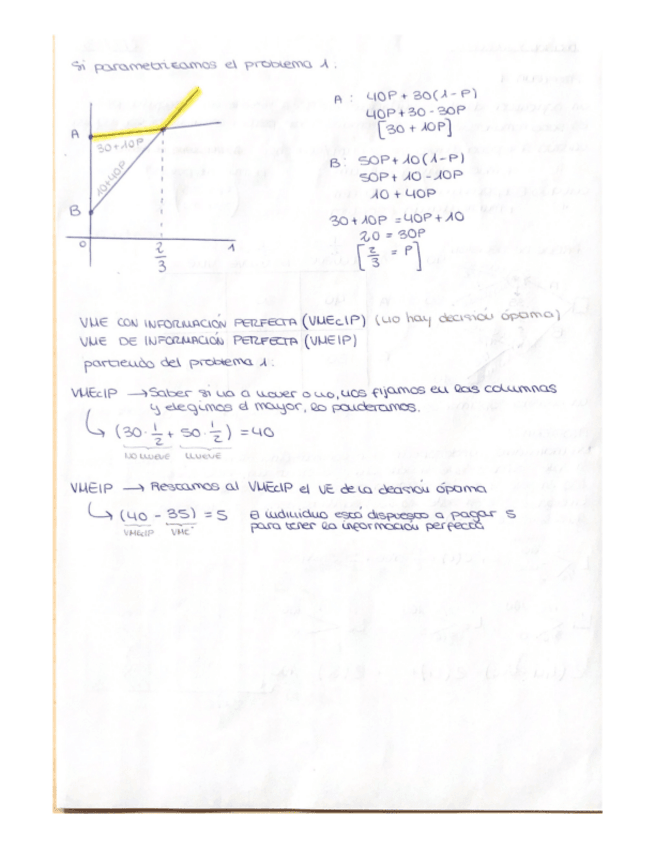 Si parametrizamos el problema 1:
A
30+10P
10+40P
B
0
2/3
1
A: 40P + 30(1-P)
40P + 30 - 30P
[30 + 10P]
B: 50P + 10(1-P)
50P + 10 - 10P
10 + 40P
30 + 10P = 40P + 10
20 = 30P
[2/3 = P]
VME CON INFORMACIÓN PERFECTA (VMEcIP) (no hay decisión óptima)
VME DE INFORMACIÓN PERFECTA (VMEIP)
partiendo del problema 1:
VMEcIP → Saber si va a llover o no, nos fijamos en las columnas
y elegimos el mayor, lo ponderamos.
(30 · 1/2 + 50 · 1/2) = 40
NO LLUEVE LLUEVE
VMEIP → Restamos al VMEcIP el VE de la decisión óptima
(40 - 35) = 5 El individuo está dispuesto a pagar 5
para tener la información perfecta
VMEcIP VME